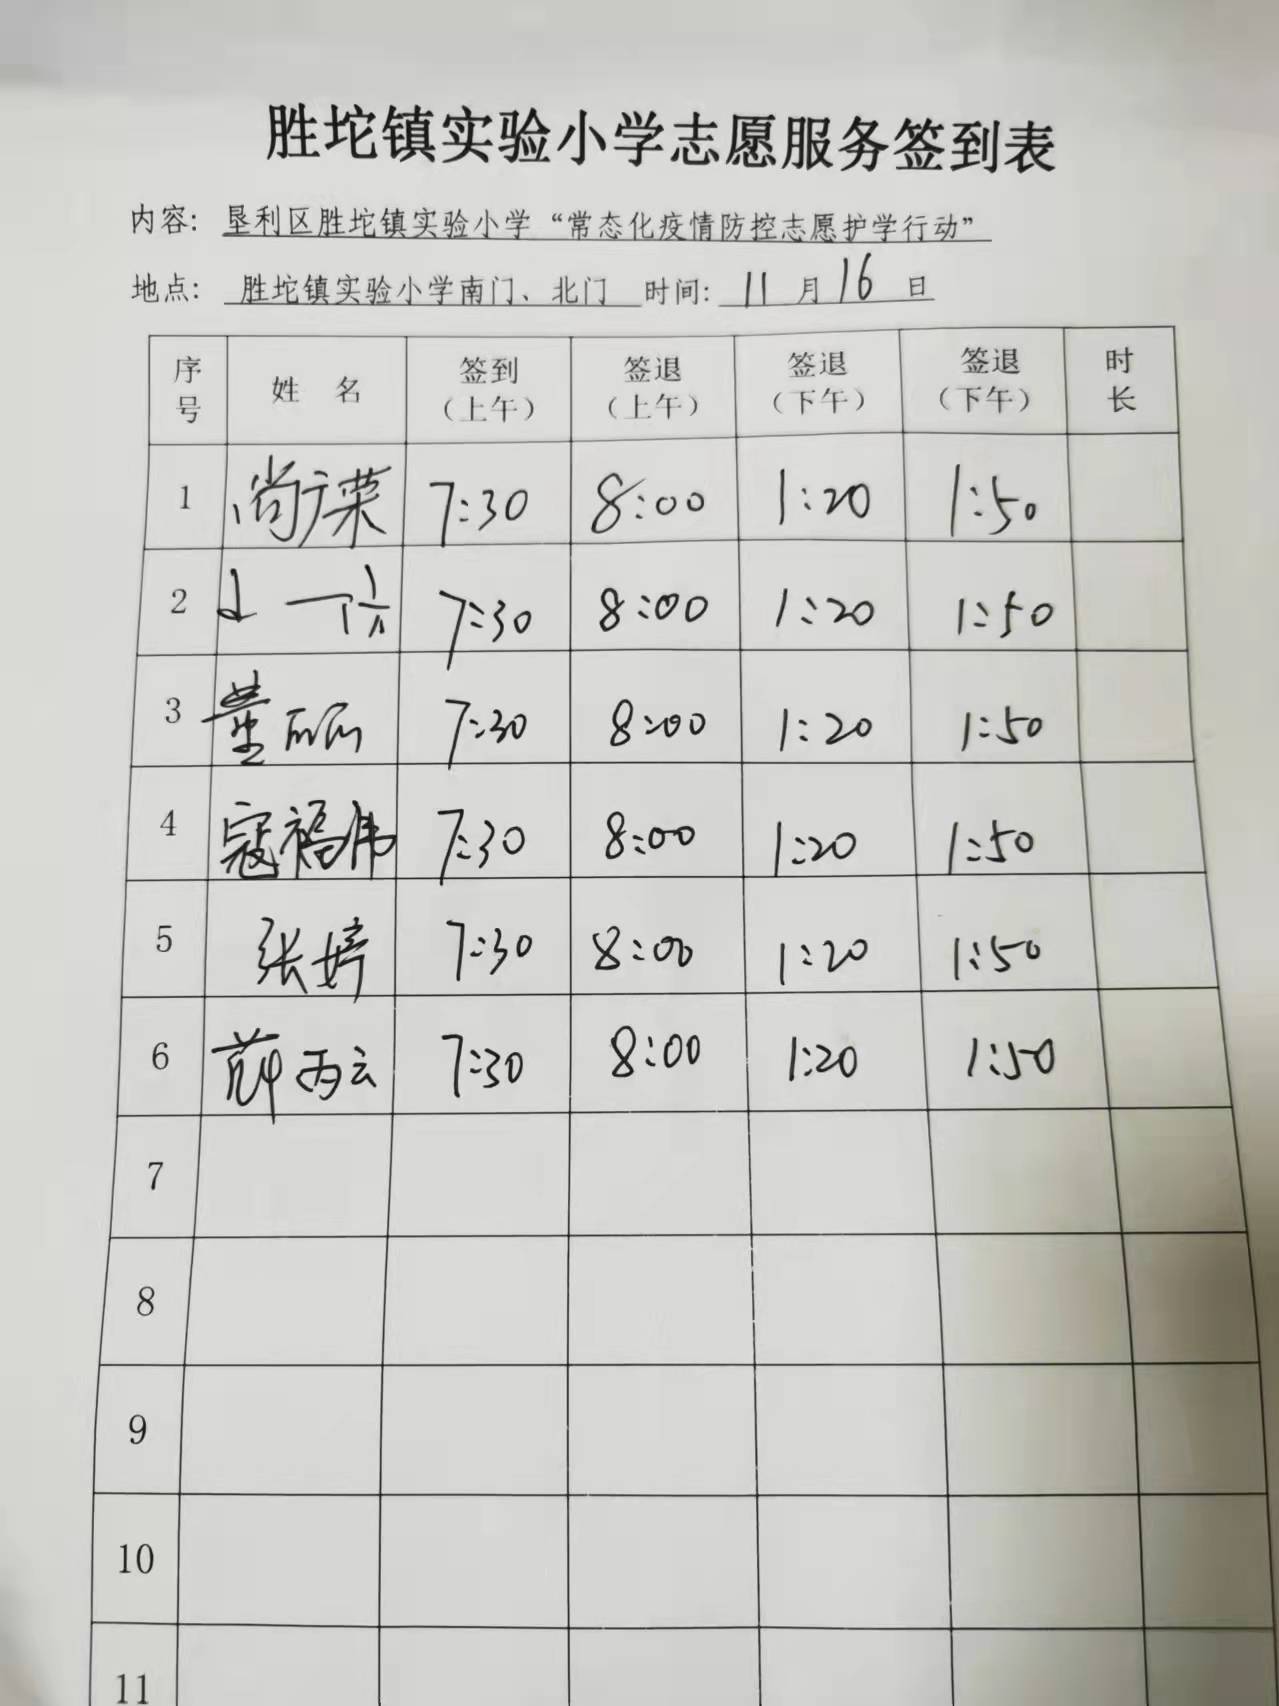 胜坨镇实验小学志愿服务签到表
内容: 垦利区胜坨镇实验小学“常态化疫情防控志愿护学行动”
地点: 胜坨镇实验小学南门、北门 时间: 11 月 16 日
序号 姓 名 签到（上午） 签退（上午） 签退（下午） 签退（下午） 时长
1 尚广荣 7:30 8:00 1:20 1:50
2 7:30 8:00 1:20 1:50
3 董丽 7:30 8:00 1:20 1:50
4 寇福伟 7:30 8:00 1:20 1:50
5 张婷 7:30 8:00 1:20 1:50
6 薛丙云 7:30 8:00 1:20 1:50
7
8
9
10
11